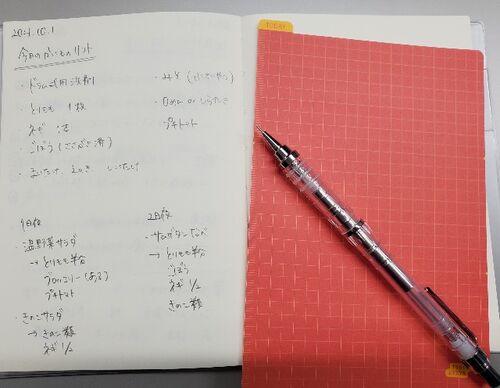 2021.10.1
今日のかいものリスト
・ドラム式用洗剤
・とりもも 1枚
ネギ
・ごぼう(ささがき済)
・まいたけ、えのき、しいたけ
・みそ
・白めん or しらたき
プチトマト
1日夜
・温野菜サラダ
→ とりもも半分
ブロッコリー(ある)
プチトマト
・きのこサラダ
→ きのこ類
ネギ 1/2
2日夜
・サムゲタンなべ
→ とりもも半分
ごぼう
ネギ 1/2
きのこ類
TODAY